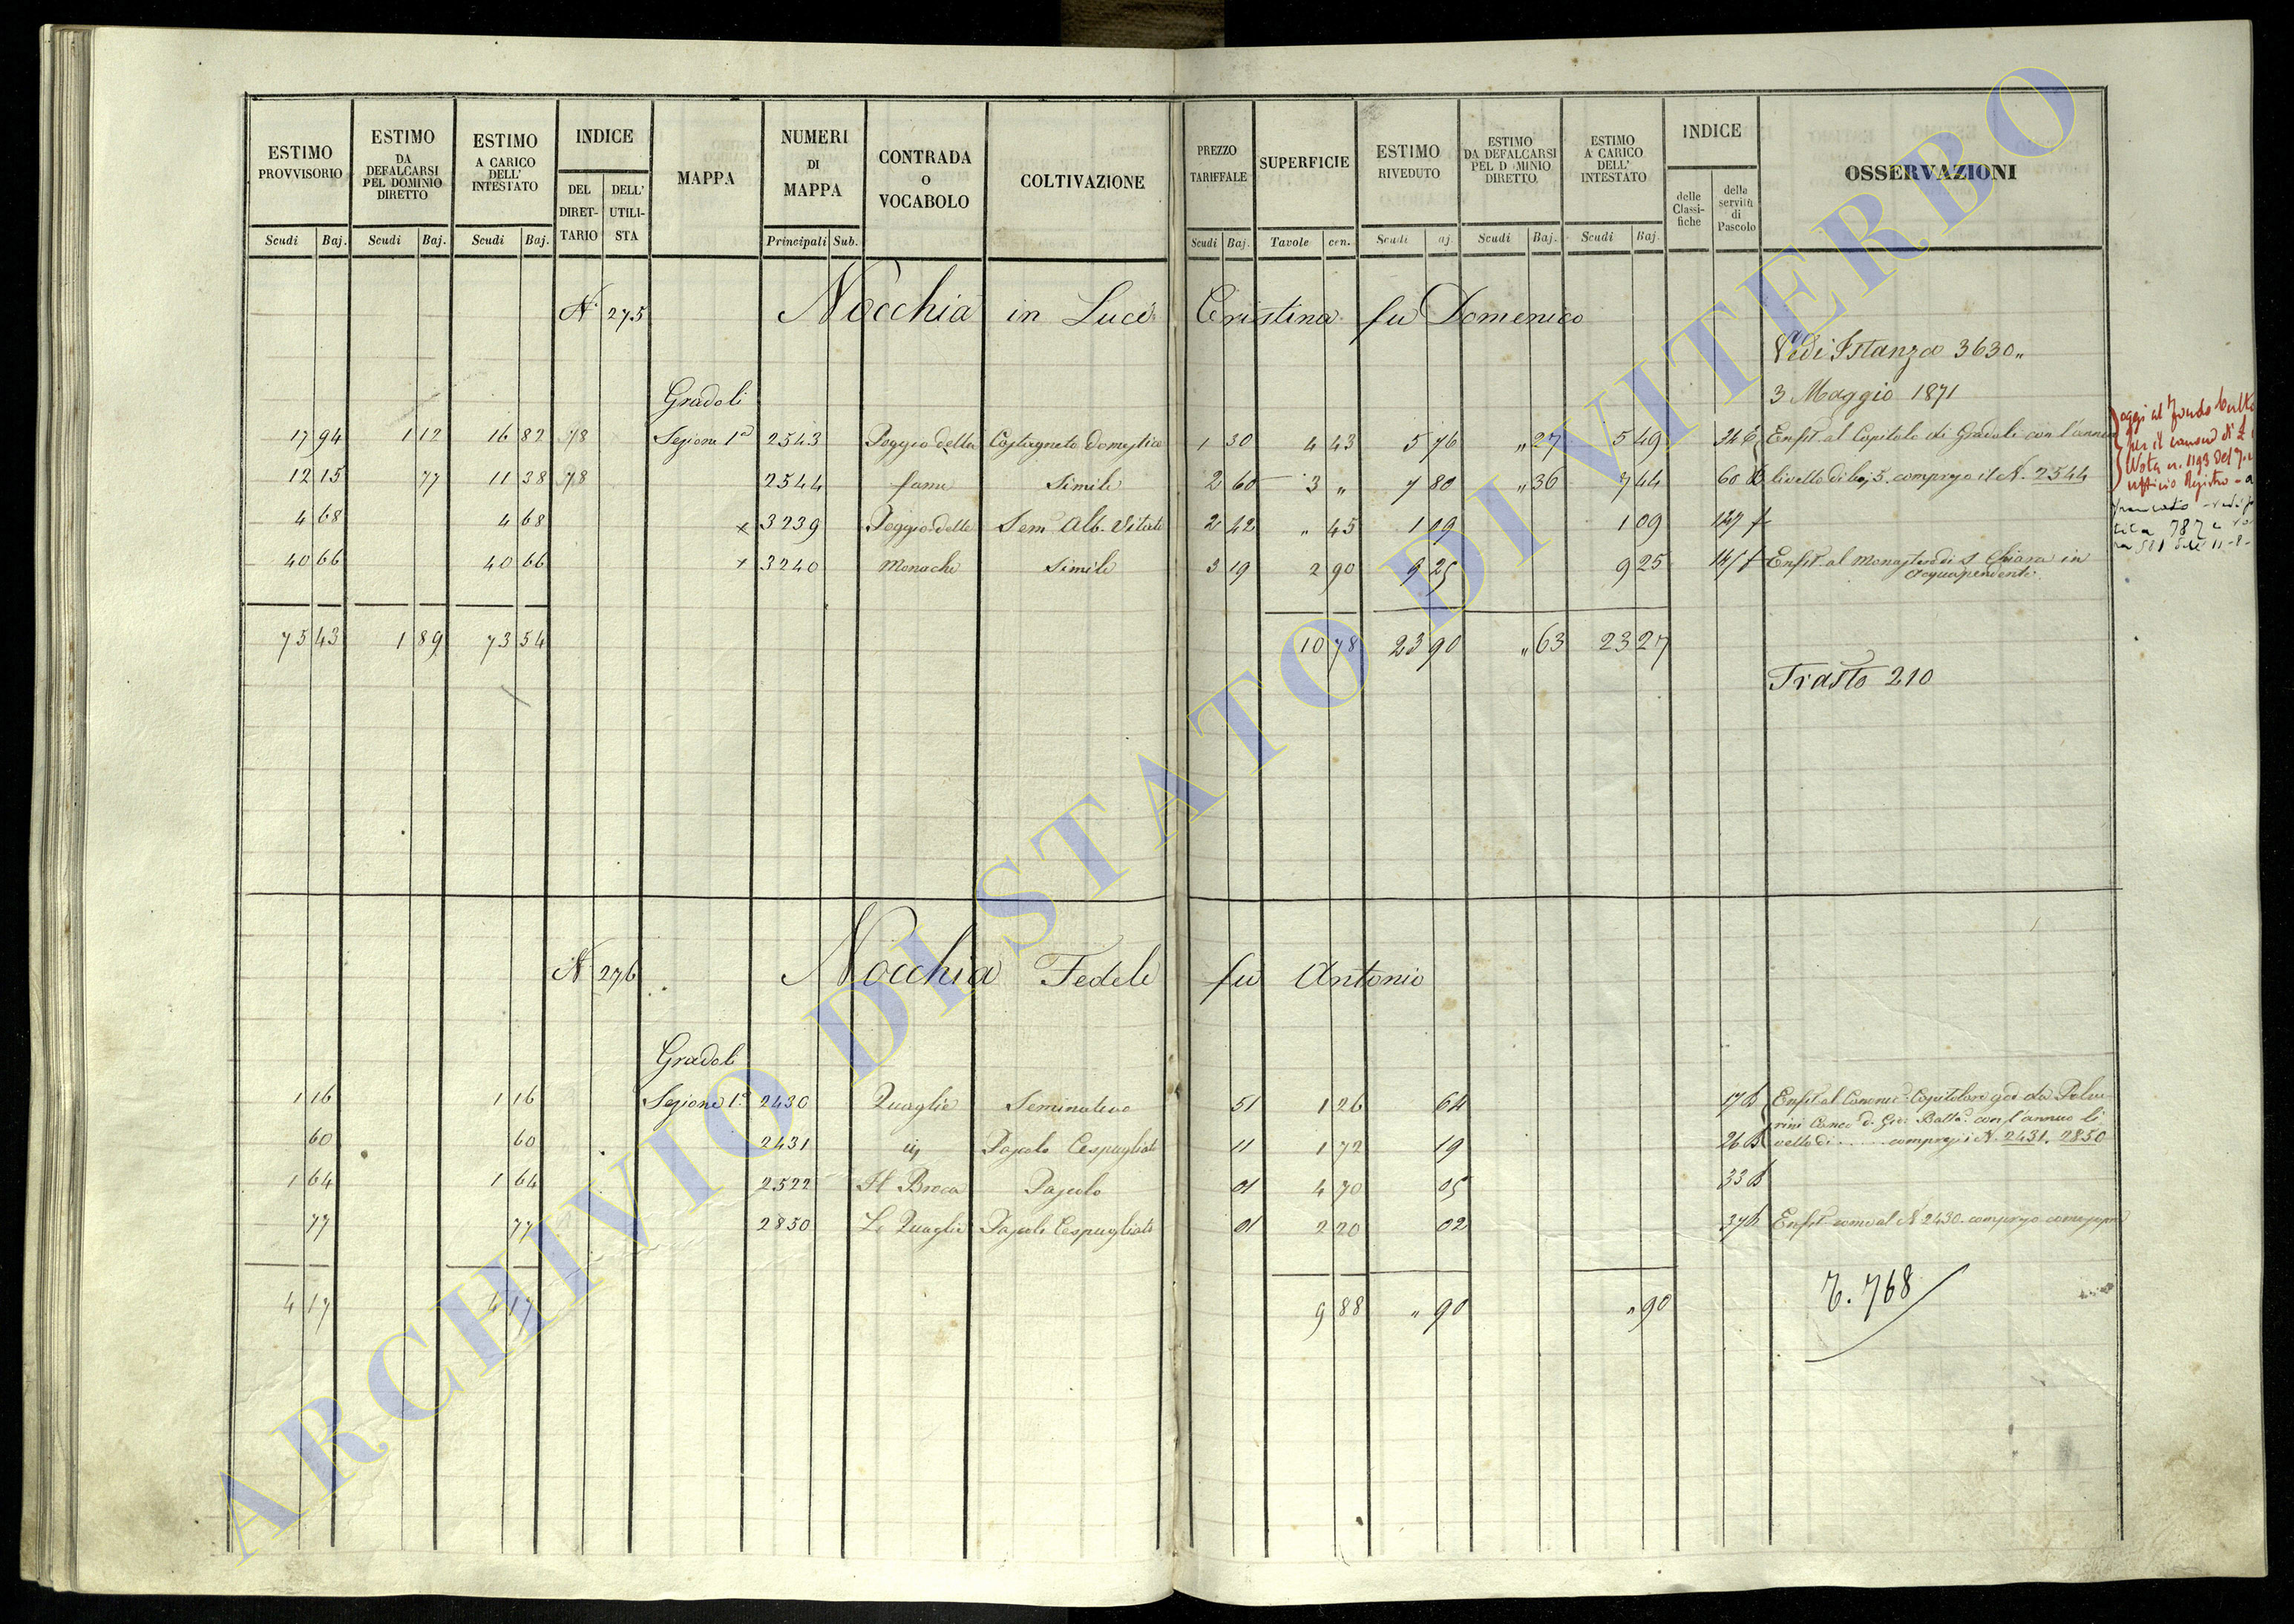 ESTIMO PROVVISORIO Scudi Baj.
ESTIMO DA DEFALCARSI PEL DOMINIO DIRETTO Scudi Baj.
ESTIMO A CARICO DELL' INTESTATO Scudi Baj.
INDICE DEL DIRETTARIO DELL' UTILISTA
MAPPA
NUMERI DI MAPPA Principali Sub.
CONTRADA O VOCABOLO
COLTIVAZIONE
PREZZO TARIFFALE Scudi Baj.
SUPERFICIE Tavole cen.
ESTIMO RIVEDUTO Scudi aj.
ESTIMO DA DEFALCARSI PEL D MINIO DIRETTO Scudi Baj.
ESTIMO A CARICO DELL' INTESTATO Scudi Baj.
INDICE delle Classifiche della servitù di Pascolo
OSSERVAZIONI
N. 275 Nocchia in Luci Cristina fu Domenico
Vedi Istanza 3630
3 Maggio 1871
Gradoli
17 94 1 12 16 82 78 Sezione 1a 2543 Poggio della Castagneto Domestico 1 30 4 43 5 76 " 27 5 49 Enfit. al Capitolo di Gradoli con l'annuo
12 15 77 11 38 78 2544 fame Simile 2 60 3 " 7 80 " 36 7 44 60 livello di baj 5. compreso il N. 2544
4 68 4 68 x 3239 Poggio delle Sem. Alb. Vitato 2 42 " 45 1 09 1 09
40 66 40 66 x 3240 Monache Simile 3 19 2 90 9 25 9 25 Enfit. al Monastero di S. Chiara in
Acquapendente.
75 43 1 89 73 54 10 78 23 90 " 63 23 27
oggi al fondo Culto
per il canone di £
Nota n. 1193 del
ufficio Registro
Trasto 210
N. 276 Nocchia Fedele fu Antonio
Gradoli
1 16 1 16 Sezione 1a 2430 Quaglie Seminativo 51 1 26 64 17 Enfit. al Canonic. Capitolare
Gio: Batta. con l'annuo li
60 60 2431 Pascolo Cespugliato 11 1 72 19 26 vello di ...... compresi i N. 2431. 2850
1 64 1 64 2522 Pascolo 01 4 70 05 33
77 77 2850 Le Quaglie Pascolo Cespugliato 01 2 20 02 37 Enfit. come al N. 2430. compreso come sopra
4 17 4 17 9 88 " 90 " 90
T. 768
ARCHIVIO DI STATO DI VITERBO